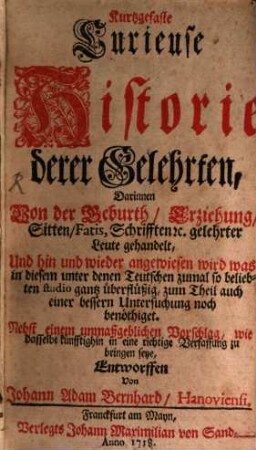 Kurtzgefaste
Curieuse
Historie
derer Gelehrten,
Darinnen
Von der Geburth/ Erziehung/
Sitten/ Fatis, Schrifften ꝛc. gelehrter
Leute gehandelt,
Und hin und wieder angewiesen wird was
in diesem unter denen Teutschen zumal so belieb-
ten studio gantz überflüßig, zum Theil auch
einer bessern Untersuchung noch
benöthiget.
Nebst einem unmaßgeblichen Vorschlag, wie
dasselbe künfftighin in eine richtige Verfassung zu
bringen seye,
Entworffen
Von
Johann Adam Bernhard/ Hanoviensi.
Franckfurt am Mayn,
Verlegts Johann Maximilian von Sand.
Anno 1718.